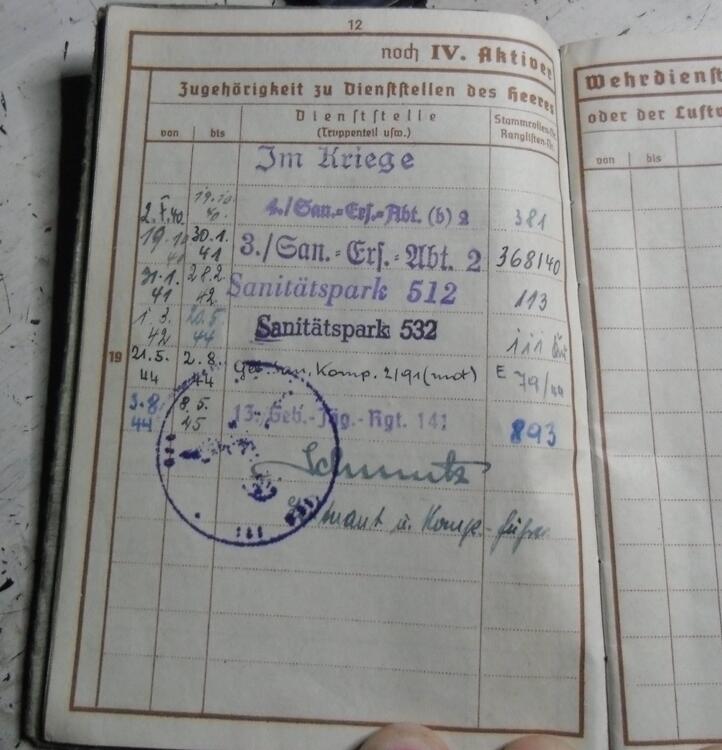 12
noch IV. Aktiver
Wehrdienst
Zugehörigkeit zu Dienststellen des Heeres
oder der Luftw
von bis Dienststelle (Truppenteil usw.) Stammrollen-Nr. Ranglisten-Nr.
von bis
Im Kriege
2.7.40. 19.10. 40. 4./San.-Ers.-Abt. (b) 2 381
19.10 41 30.1. 41 3./San.-Ers.-Abt. 2 368140
31.1. 41 28.2. 42 Sanitätspark 512 113
1.3. 42 20.5. 44 Sanitätspark 532 111
19 21.5. 44 2.8. 44 Geb. San. Komp. 2/91 (mot) E 79/44
3.8. 44 8.5. 45 13. Geb.-Jäg.-Rgt. 141 893
Schmutz
u. Komp.-führer